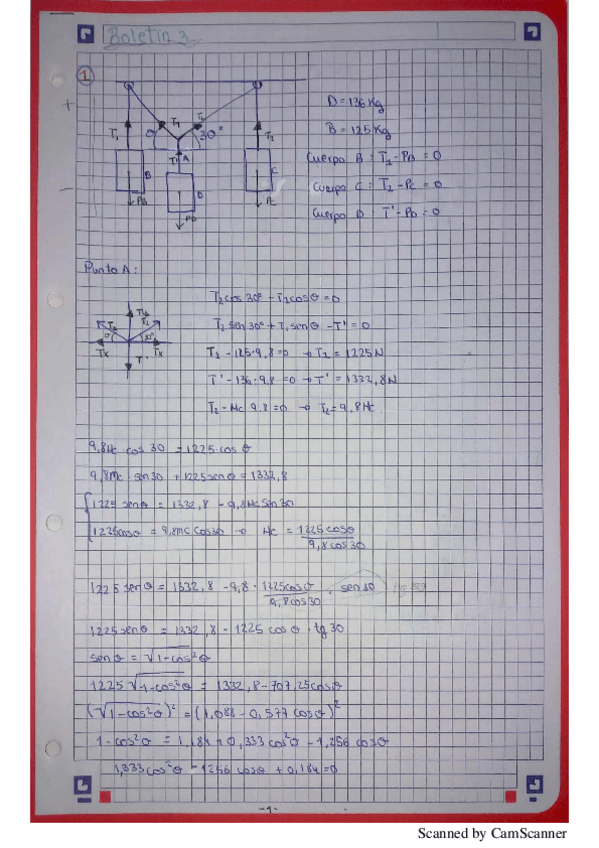 Boletín 3.
1
T₁ θ T₂ 30° T₁ T₂
D = 136 Kg
B = 125 Kg
T' A B C D
Cuerpo B: T₁ - PB = 0
Cuerpo C: T₂ - Pc = 0
Cuerpo D: T' - PD = 0
PB PD Pc
Punto A:
T₂ cos 30° - T₁ cos θ = 0
T₂ sen 30° + T₁ sen θ - T' = 0
T₁ - 125·9,8 = 0 → T₁ = 1225 N
T' - 136·9,8 = 0 → T' = 1332,8 N
T₂ - Mc 9.8 = 0 → T₂ = 9,8 Mc
9,8 Mc cos 30 = 1225 cos θ
9,8 Mc · sen 30 + 1225 sen θ = 1332,8
1225 sen θ = 1332,8 - 9,8 Mc sen 30
1225 cos θ = 9,8 Mc cos 30 → Mc = 1225 cos θ / 9,8 cos 30
1225 sen θ = 1332,8 - 9,8 · 1225 cos θ / 9,8 cos 30 · sen 30
1225 sen θ = 1332,8 - 1225 cos θ · tg 30
sen θ = √1-cos²θ
1225 √1-cos²θ = 1332,8 - 707,25 cos θ
(√1-cos²θ)² = (1,088 - 0,577 cos θ)²
1-cos²θ = 1,184 + 0,333 cos²θ - 1,256 cos θ
1,333 cos²θ - 1256 cos θ + 0,184 = 0
-1-
Scanned by CamScanner